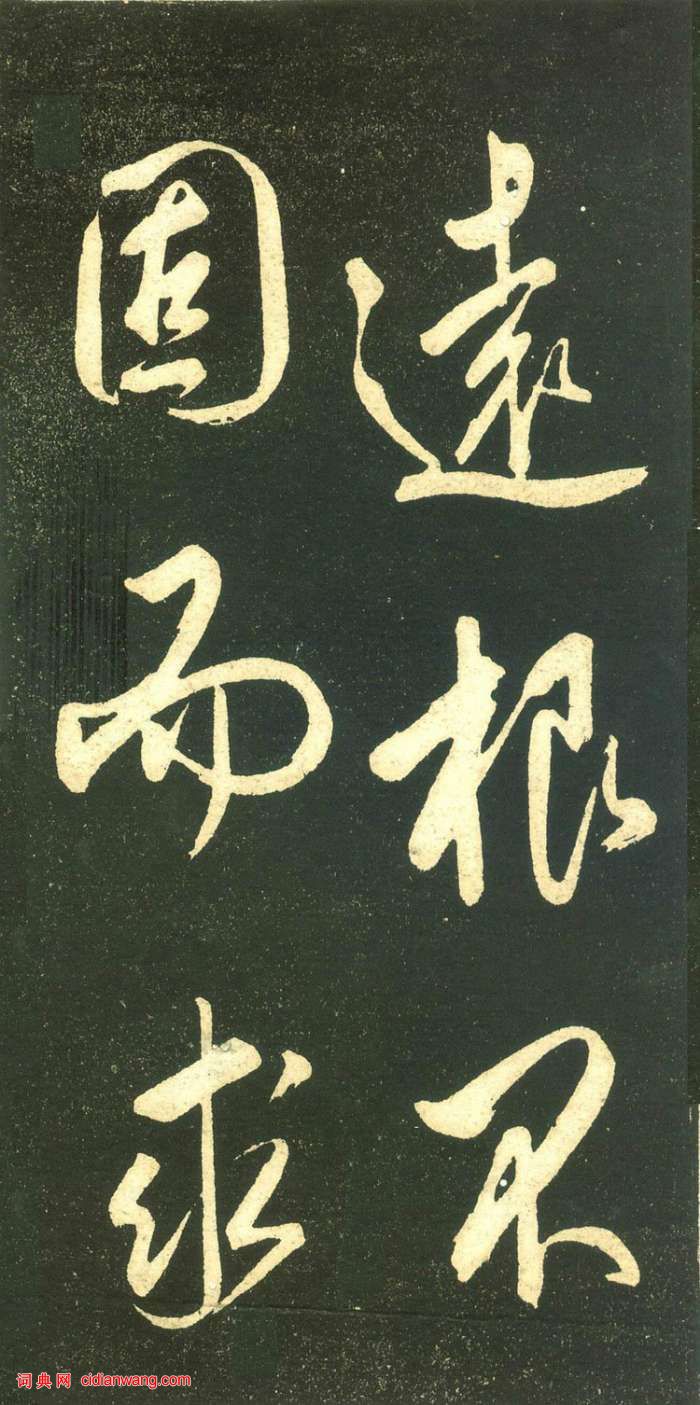 遠根不
固而求
词典网 cidianwang.com